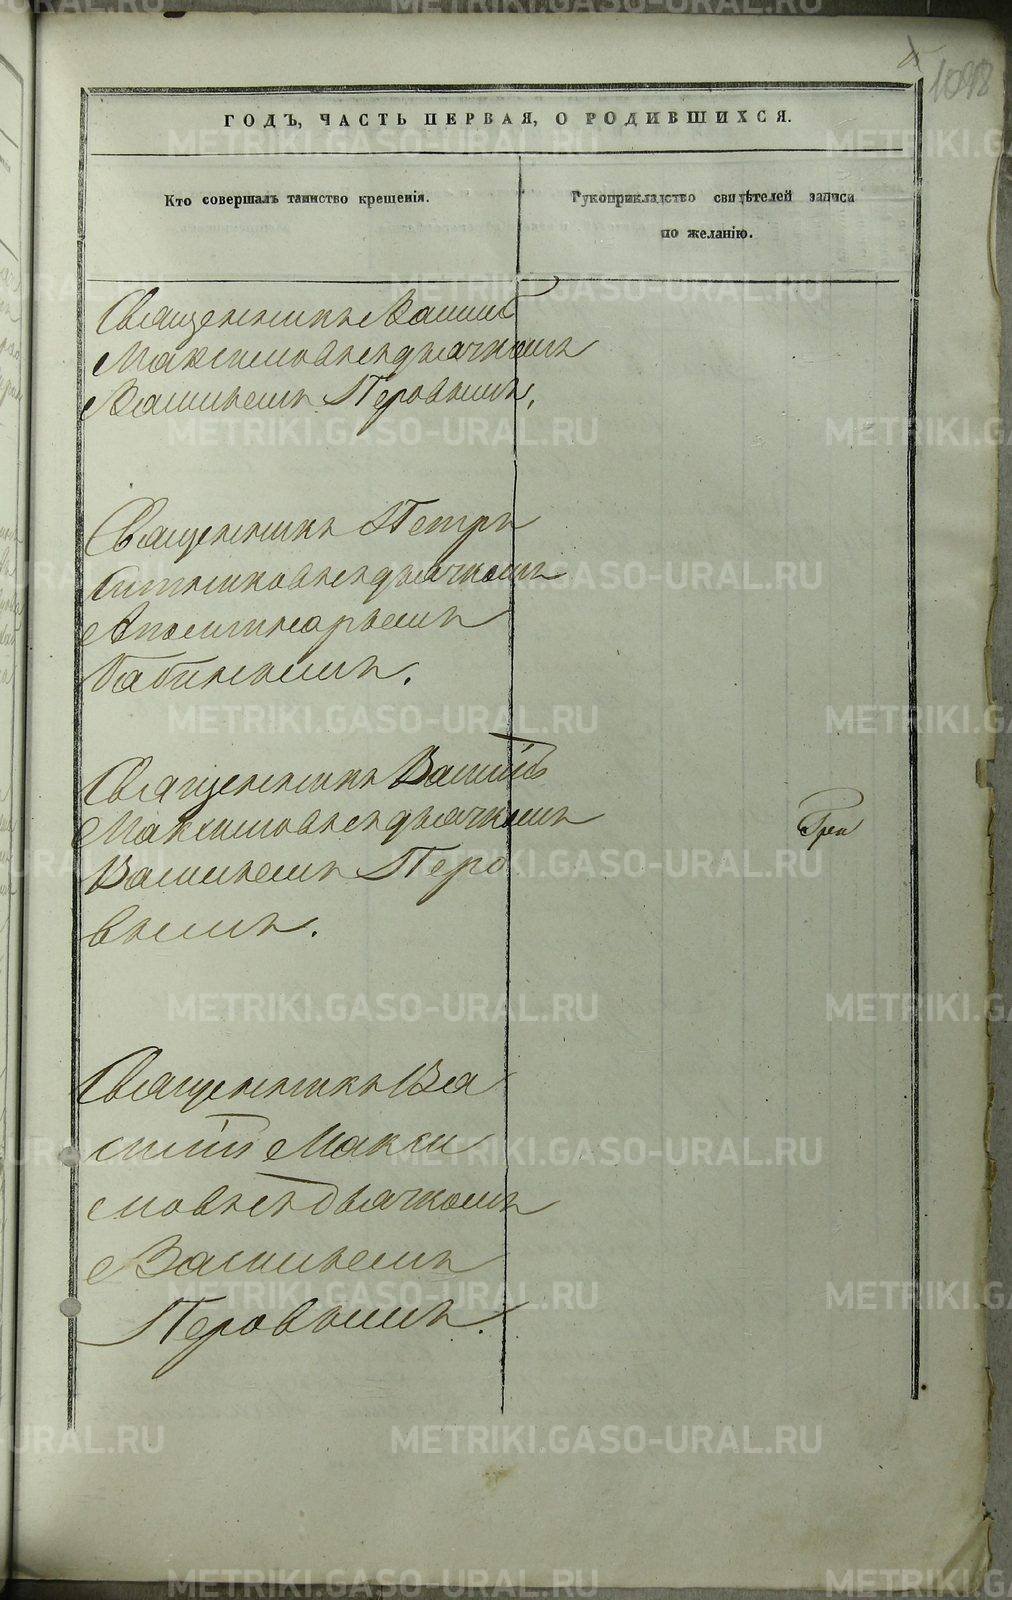 1098
ГОДЪ, ЧАСТЬ ПЕРВАЯ, О РОДИВШИХСЯ.
Кто совершалъ таинство крещенія.
Рукоприкладство свидѣтелей записи
по желанію.
Священникъ Василій
Максимовъ съ дьячкомъ
Васильемъ Перовымъ.
Священникъ Петръ
съ дьячкомъ
Аполинарьемъ
Бабинымъ.
Священникъ Василій
Максимовъ съ дьячкомъ
Васильемъ Перо
вымъ.
Священникъ Ва
силій Макси
мовъ съ дьячкомъ
Васильемъ
Перовымъ.
METRIKI.GASO-URAL.RU